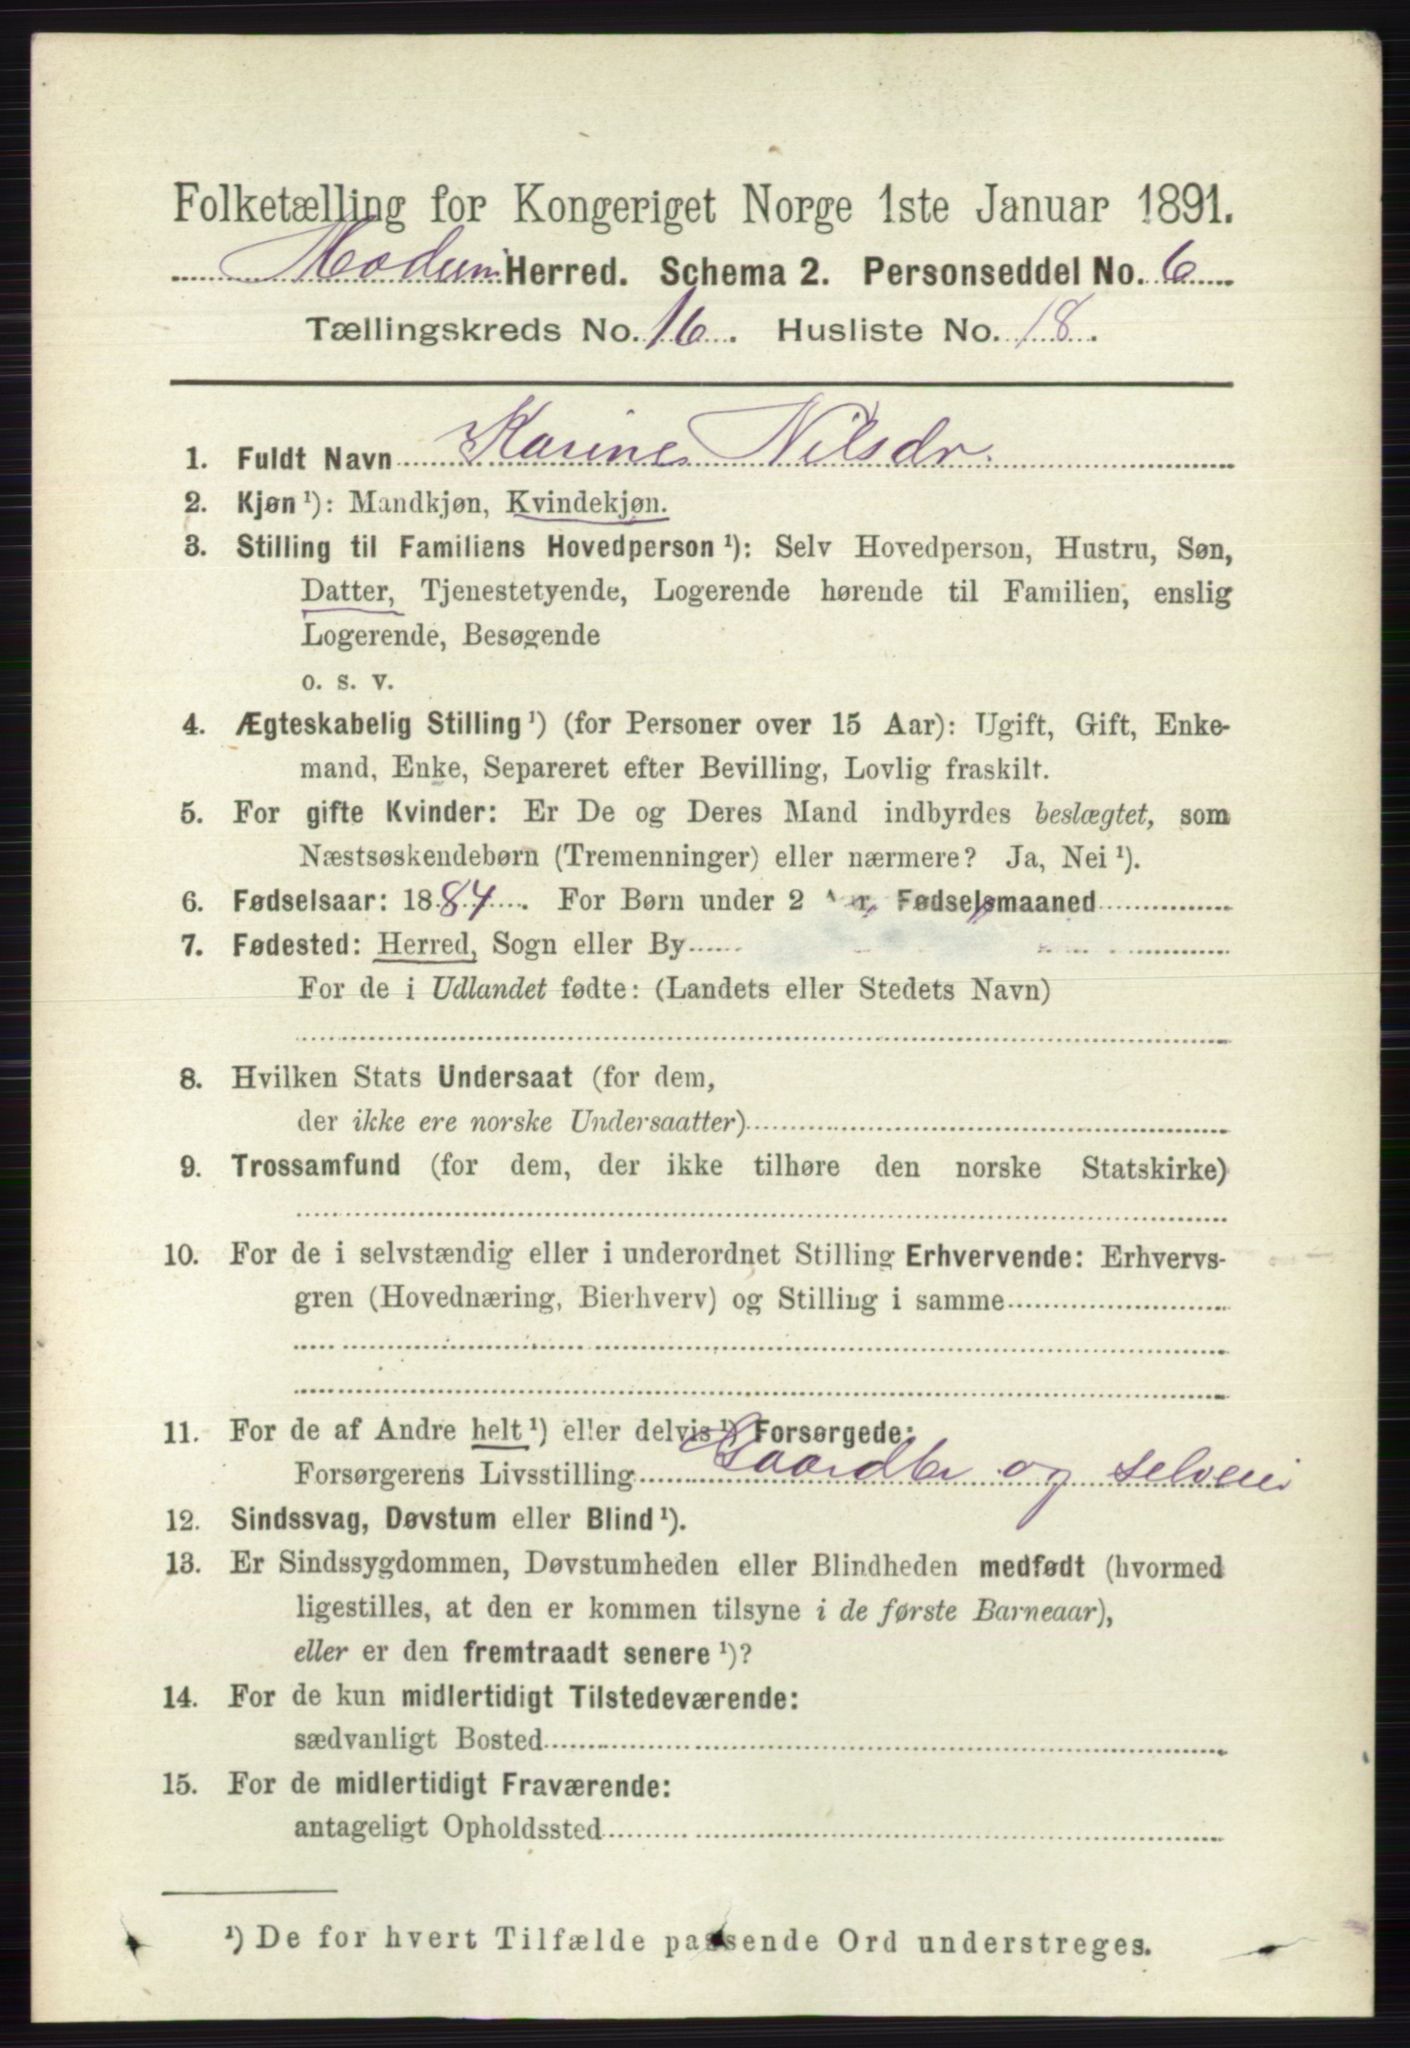 Folketælling for Kongeriget Norge 1ste Januar 1891.
Modum Herred. Schema 2. Personseddel No. 6
Tællingskreds No. 16. Husliste No. 18.
1. Fuldt Navn Karine Nilsdr.
2. Kjøn¹): Mandkjøn, Kvindekjøn.
3. Stilling til Familiens Hovedperson¹): Selv Hovedperson, Hustru, Søn,
Datter, Tjenestetyende, Logerende hørende til Familien, enslig
Logerende, Besøgende
o. s. v.
4. Ægteskabelig Stilling¹) (for Personer over 15 Aar): Ugift, Gift, Enke-
mand, Enke, Separeret efter Bevilling, Lovlig fraskilt.
5. For gifte Kvinder: Er De og Deres Mand indbyrdes beslægtet, som
Næstsøskendebørn (Tremenninger) eller nærmere? Ja, Nei¹).
6. Fødselsaar: 1884. For Børn under 2 Aar, Fødselsmaaned
7. Fødested: Herred, Sogn eller By
For de i Udlandet fødte: (Landets eller Stedets Navn)
8. Hvilken Stats Undersaat (for dem,
der ikke ere norske Undersaatter)
9. Trossamfund (for dem, der ikke tilhøre den norske Statskirke)
10. For de i selvstændig eller i underordnet Stilling Erhvervende: Erhvervs-
gren (Hovednæring, Bierhverv) og Stilling i samme
11. For de af Andre helt¹) eller delvis¹) Forsørgede:
Forsørgerens Livsstilling Gaardbr og selveier
12. Sindssvag, Døvstum eller Blind¹).
13. Er Sindssygdommen, Døvstumheden eller Blindheden medfødt (hvormed
ligestilles, at den er kommen tilsyne i de første Barneaar),
eller er den fremtraadt senere¹)?
14. For de kun midlertidigt Tilstedeværende:
sædvanligt Bosted
15. For de midlertidigt Fraværende:
antageligt Opholdssted
¹) De for hvert Tilfælde passende Ord understreges.